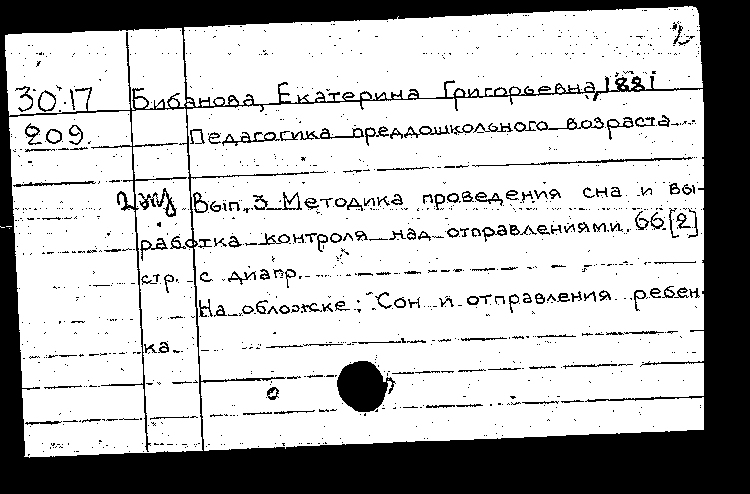 2
30.17 Бибанова, Екатерина Григорьевна, 1881
209. Педагогика преддошкольного возраста
2 экз Вып. 3 Методика проведения сна и вы-
работка контроля над отправлениями. 66 [2]
стр. с диагр.
На обложке: Сон и отправления ребен-
ка